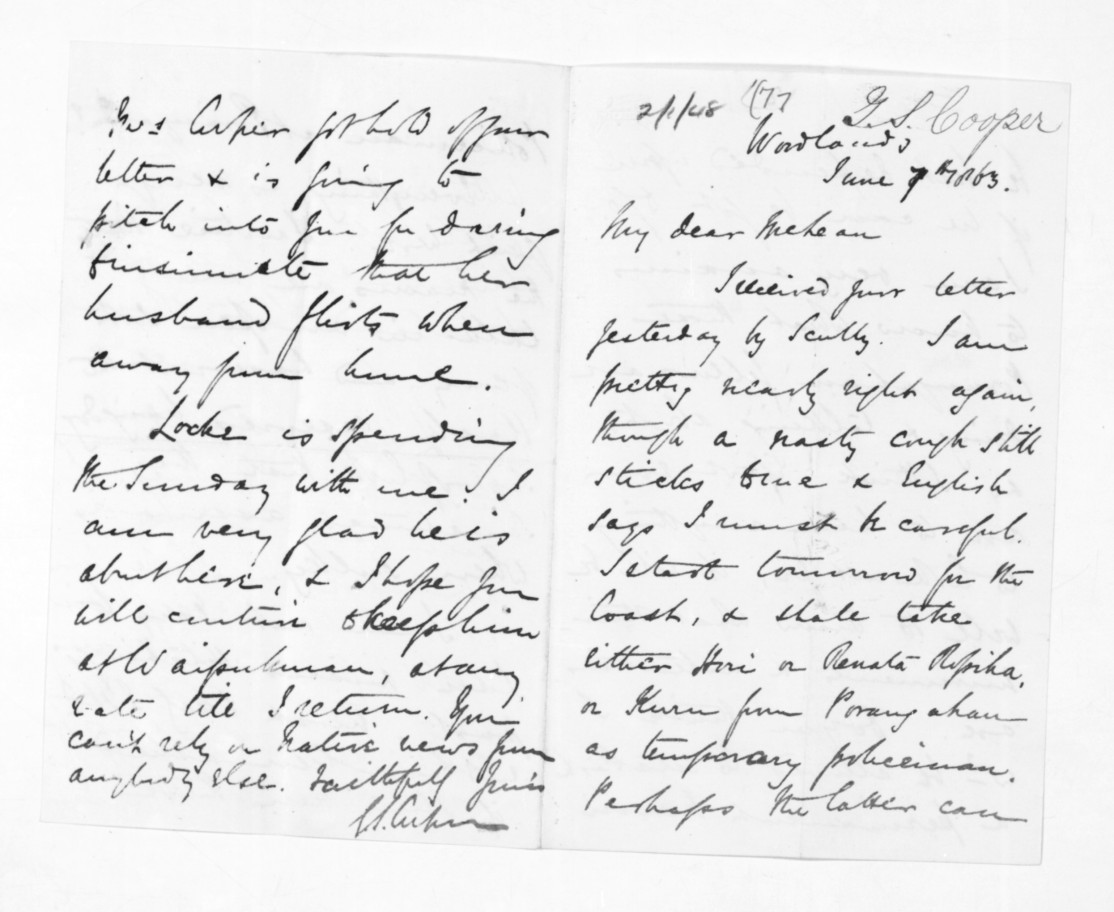 2/1/48 177 G. S. Cooper
Woodlands
June 7th 1863.
My dear McLean
I received your letter
yesterday by Scully. I am
pretty nearly right again,
though a nasty cough still
sticks to me & English
says I must be careful.
I start tomorrow for the
Coast, & shall take
either Hori or Renata Ropiha,
or Kuru from Porangahau
as temporary policeman.
Perhaps the latter can
Mrs Cooper got hold of your
letter & is going to
pitch into you for daring
to insinuate that her
husband flirts when
away from home.
Locke is spending
the Sunday with me. I
am very glad he is
about here, & I hope you
will continue to keep him
at Waipukurau, at any
rate till I return. You
can't rely on Native news from
anybody else. Faithfully Yours
G. S. Cooper